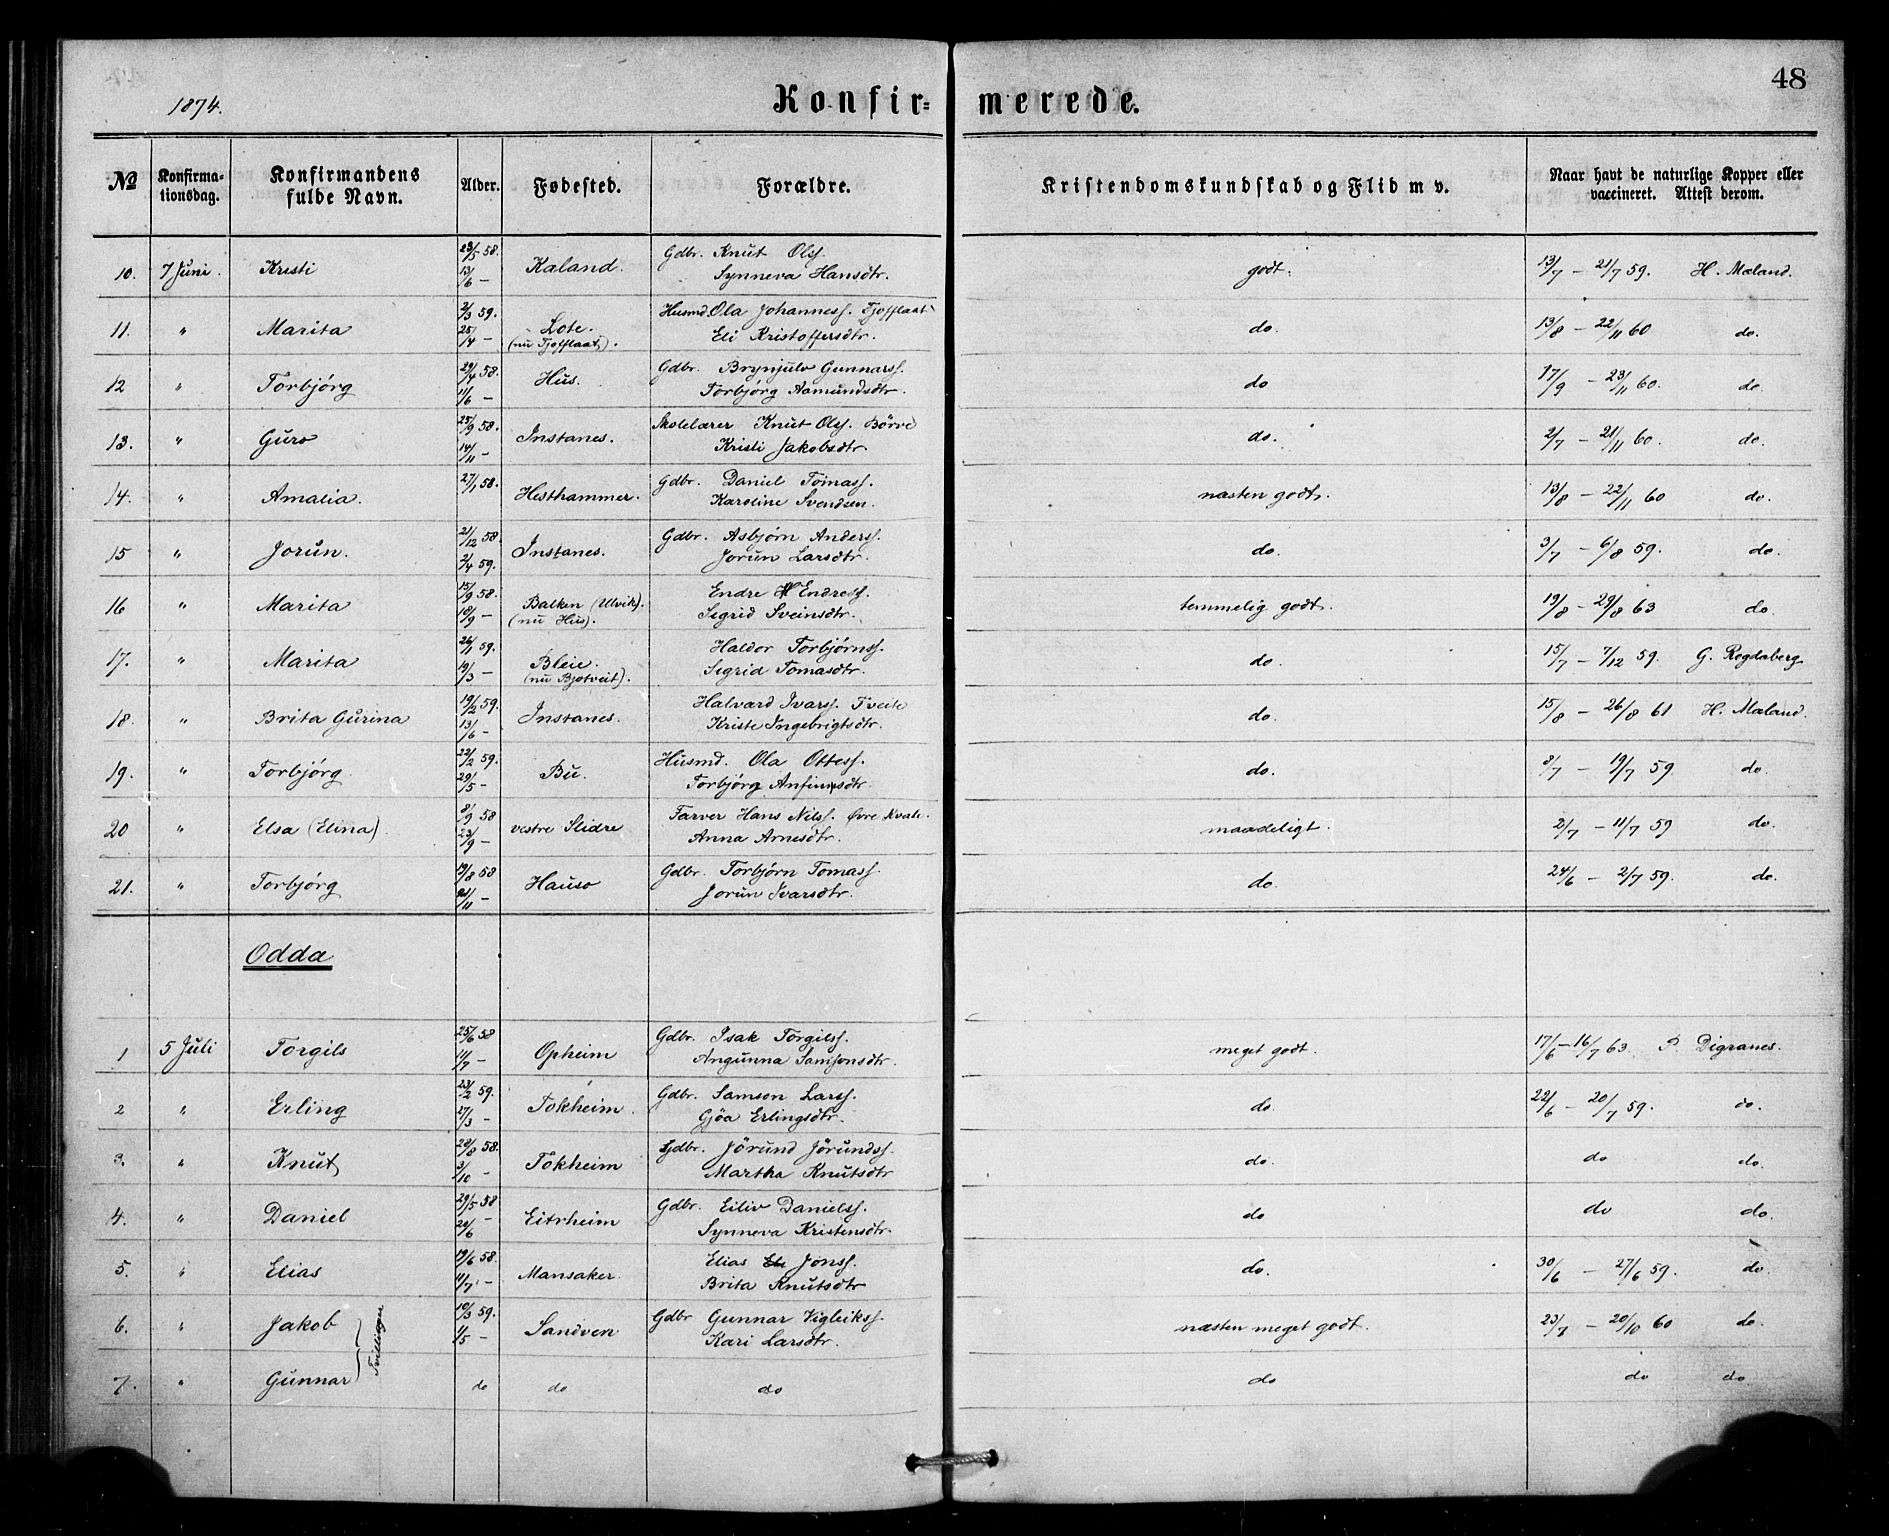 48
1874.
Konfir= merede.
No Konfirma-tionsdag. Konfirmandens fulde Navn. Alder. Fødested. Forældre. Kristendomskundskab og Flid m v. Naar havt de naturlige Kopper eller vaccineret. Attest derom.
10. 7 Juni. Kristi 23/5 58. 13/6 — Kaland. Gdbr. Knut Ols. Synneva Hansdtr. godt. 13/7 — 21/7 59. H. Mæland.
11. " Marita 2/3 59. 25/4 — Lote. (nu Tjofflaat). Husmd. Ola Johanness. Tjofflaat Eli Kristoffersdtr. do. 13/8 — 22/11 60 do.
12 " Torbjörg 29/4 58. 11/6 — Hus. Gdbr. Brynjulv Gunnarss. Torbjørg Aamundsdtr. do 17/9 — 23/11 60. do
13. " Guro 25/9 58. 14/11 — Instanes. Skolelærer Knut Ols. Börve Kristi Jakobsdtr. do. 2/7 — 21/11 60. do.
14. " Amalia. 27/1 58. Hesthammer. Gdbr. Daniel Tomass. Karoline Svendsen. næsten godt. 13/8 — 22/11 60 do.
15 " Jorun. 21/12 58. 2/4 59. Instanes. Gdbr. Asbjørn Anderss. Jorun Larsdtr. do. 3/7 — 6/8 59. do.
16 " Marita 15/9 58. 18/9 — Balken (Ulvik). (nu Hus). Endre Endress. Sigrid Sveinsdtr. temmelig godt. 19/8 — 29/8 63 do.
17. " Marita 26/1 59. 19/3 — Bleie. (nu Bjotveit). Haldor Torbjørnss. Sigrid Tomasdtr. do. 15/7 — 7/12 59. G. Rogdaberg
18. " Brita Gurina 19/2 59. 13/6 — Instanes. Halvard Ivarss. Tveite Kriste Ingebrigtsdtr. do. 15/8 — 26/8 61 H. Mæland.
19. " Torbjörg 22/2 59. 29/5 — Bu. Husmd. Ola Ottess. Torbjörg Anfinsdtr. do. 8/7 — 19/7 59 do.
20 " Elsa (Elina). 8/9 58 23/9 — vestre Slidre Farver Hans Nilss. Øvre Kvale. Anna Arnesdtr. maadeligt. 2/7 — 11/7 59 do.
21. " Torbjørg 19/8 58 /11 — Hauso Gdbr. Torbjørn Tomass. Jorun Ivarsdtr. do. 24/6 — 2/7 59. do.
Odda
1 5 Juli Torgils 25/6 58 11/7 — Opheim Gdbr. Isak Torgilss. Angunna Samsonsdtr. meget godt. 17/6 — 16/7 63. P. Digranes.
2 " Erling 23/2 59. 27/3 — Tokheim. Gdbr. Samson Larss. Gjöa Erlingsdtr. do. 22/6 — 20/7 59. do.
3. " Knut 28/8 58. 3/10 — Tokheim Gdbr. Jörund Jörundss. Martha Knutsdtr do. do do.
4. " Daniel 29/5 58 20/6 — Eitrheim Gdbr. Eiliv Danielss. Synneva Kristensdtr. do do do.
5. " Elias 19/6 58. 11/7 — Mansaker. Elias Jonss. Brita Knutsdtr do. 30/6 — 27/6 59. do.
6. " Jakob 10/3 59. 1/5 — Sandven Gdbr Gunnar Vigleikss. Kari Larsdtr. næsten meget godt. 23/7 — 20/10 60 do.
Tvillinger
7. " Gunnar do do do do do do.